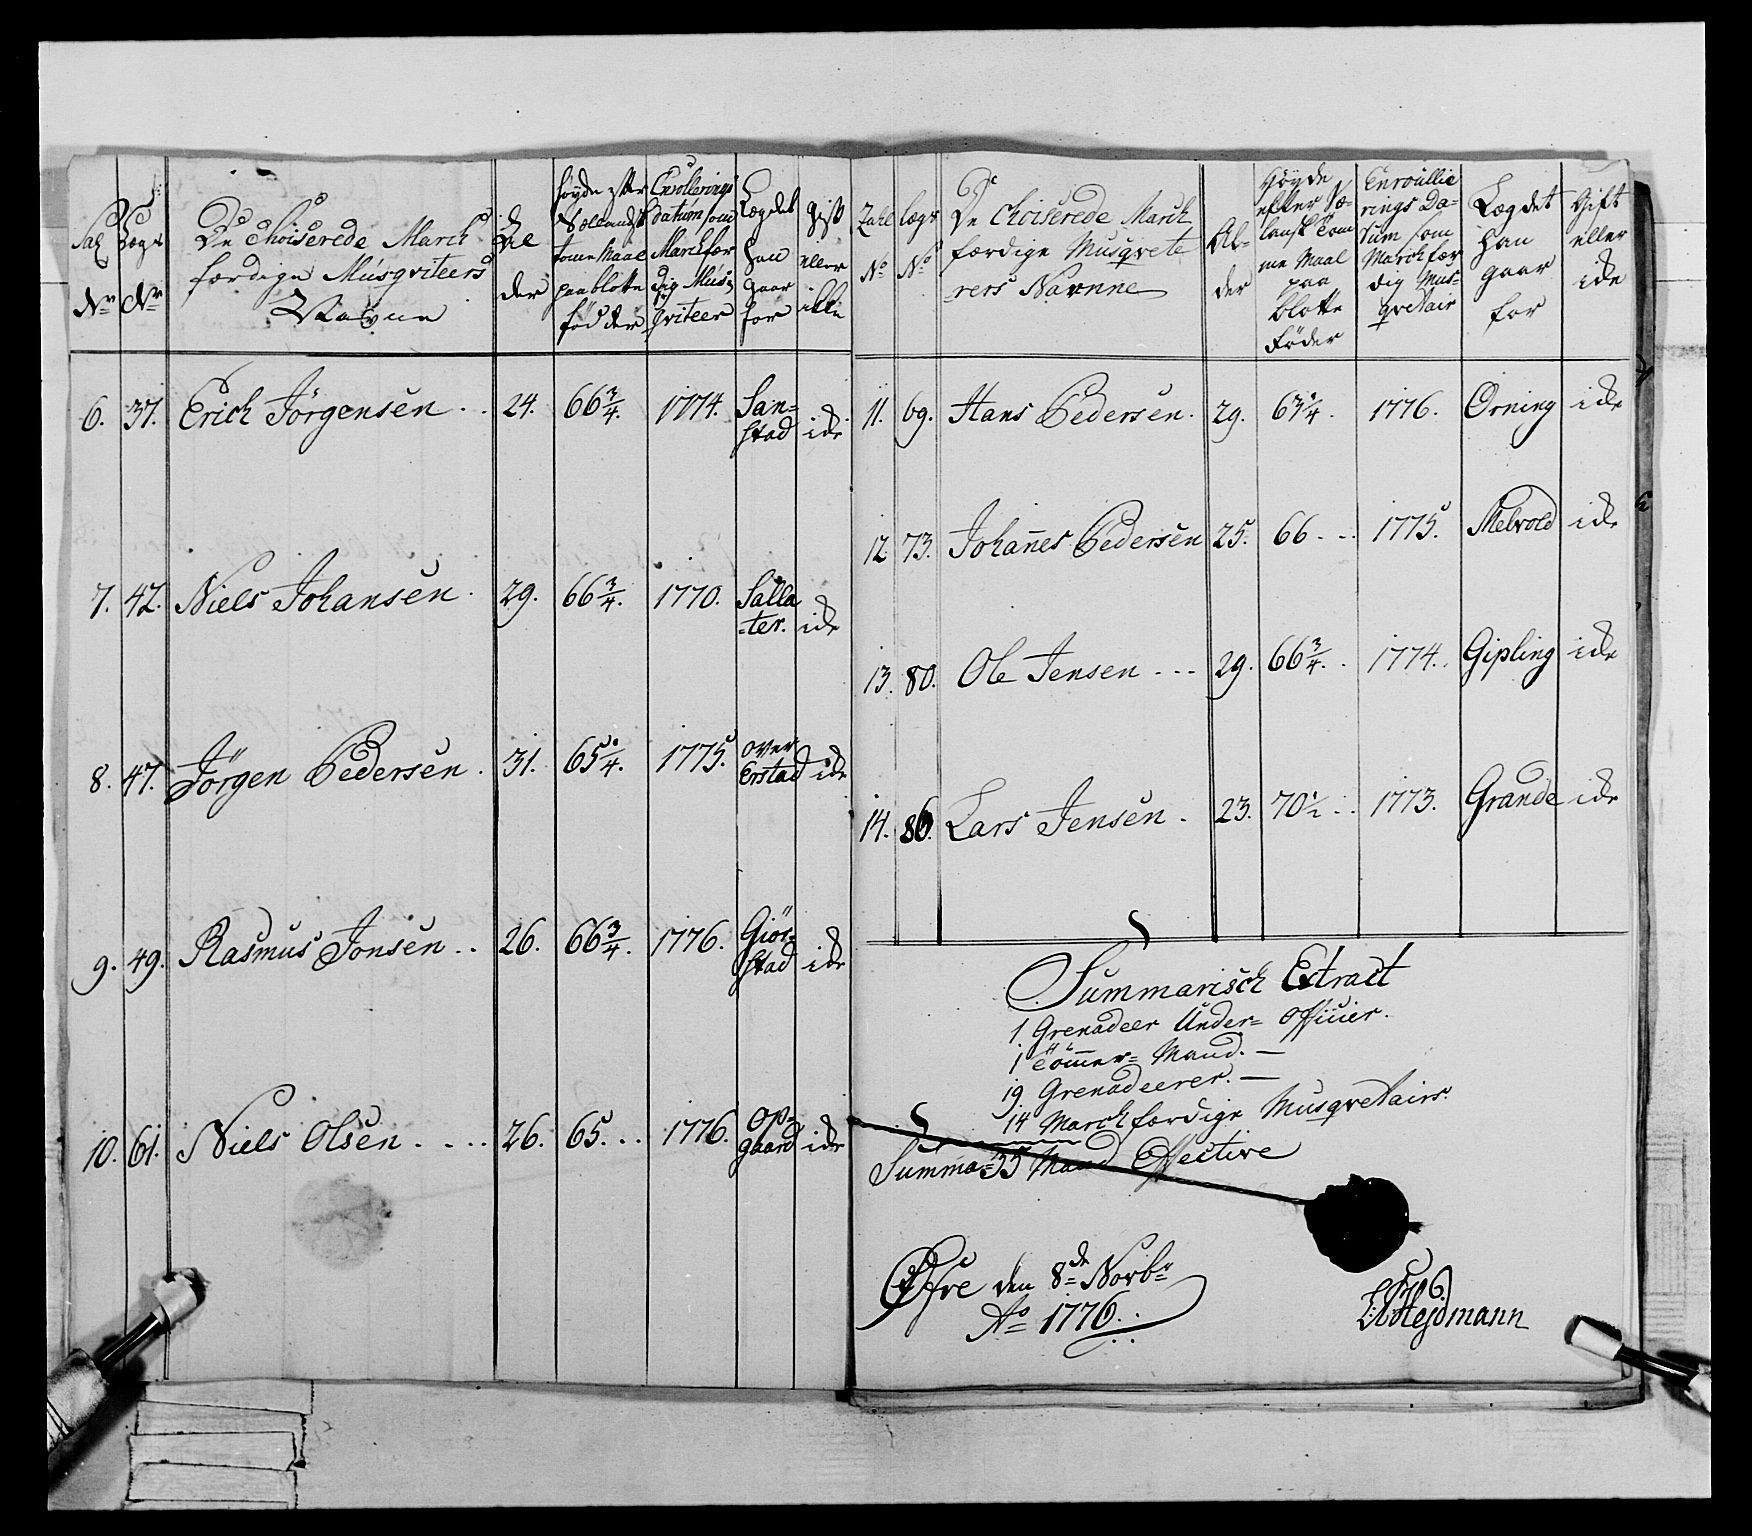 De Choiserede March
færdige Musqviteers
Navne
No No
Al
der
høyde efter
Tomme Maal
paa blotte
fødder
Enrollerings
datum som
Marchfær
dig Mus
qviteer
Lægdet
han
gaar
for
gift
eller
ikke
6. 37. Erich Jörgensen . . 24. 66 3/4. 1774. San=
stad ide
7. 42. Niels Johansen . 29. 66 3/4. 1770. Salla
=ter. ide
8. 47. Jörgen Pedersen . 31. 65 1/4. 1775. over
Erstad ide
9. 49. Rasmus Jonsen . . 26. 66 3/4. 1776. Giör=
stad ide
10. 61. Niels Olsen . . . . 26. 65. . . 1776. Op=
gaard ide
Zahl
No
lægs
No
De Choiserede March
færdige Musqvete
rers Navnne
Al=
der
Høyde
efter Sæ=
lansk Tom
me Maal
paa
blotte
Føder
Enroullie
rings Da=
tum som
Marchfær
dig Mus=
qvetair
Lægdet
han
gaar
for
Gift
eller
ide
11. 69. Hans Pedersen. 29. 63 1/4. 1776. Orning ide
12. 73. Johannes Pedersen 25. 66. . . 1775. Melvold ide
13. 80. Ole Jensen . . . 29. 66 3/4. . 1774. . Gipling ide
14. 86. Lars Jensen . 23. 70 1/2 . . 1773. Grande ide
Summarisch Extract
1. Grenadeer Under= Officier.
1 Tömmer= Mand. —
19 Grenadeerer. —
14 Marchfærdige Musqvetairs.
Summa= 35 Mand Effective
Øfre den 8de Novbr
Ao 1776.
Hejdmann